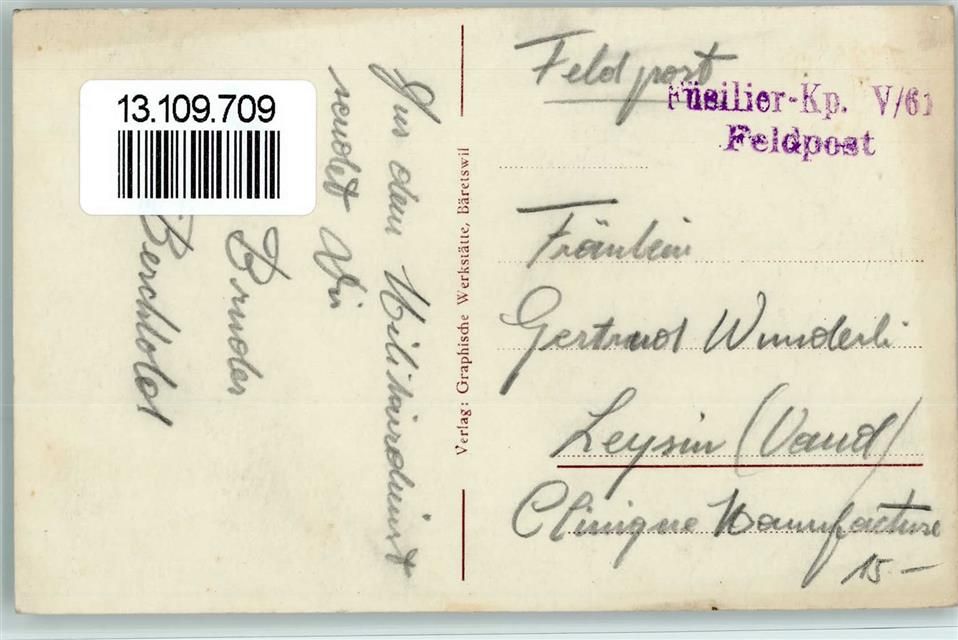 13.109.709
Aus dem Militärdienst
sendet Dir
Bruder
Berchtold
Verlag: Graphische Werkstätte, Bäretswil
Feldpost
Füsilier-Kp. V/61
Feldpost
Fräulein
Gertrud Wunderli
Leysin (Vaud)
Clinique Manufacture
15 —